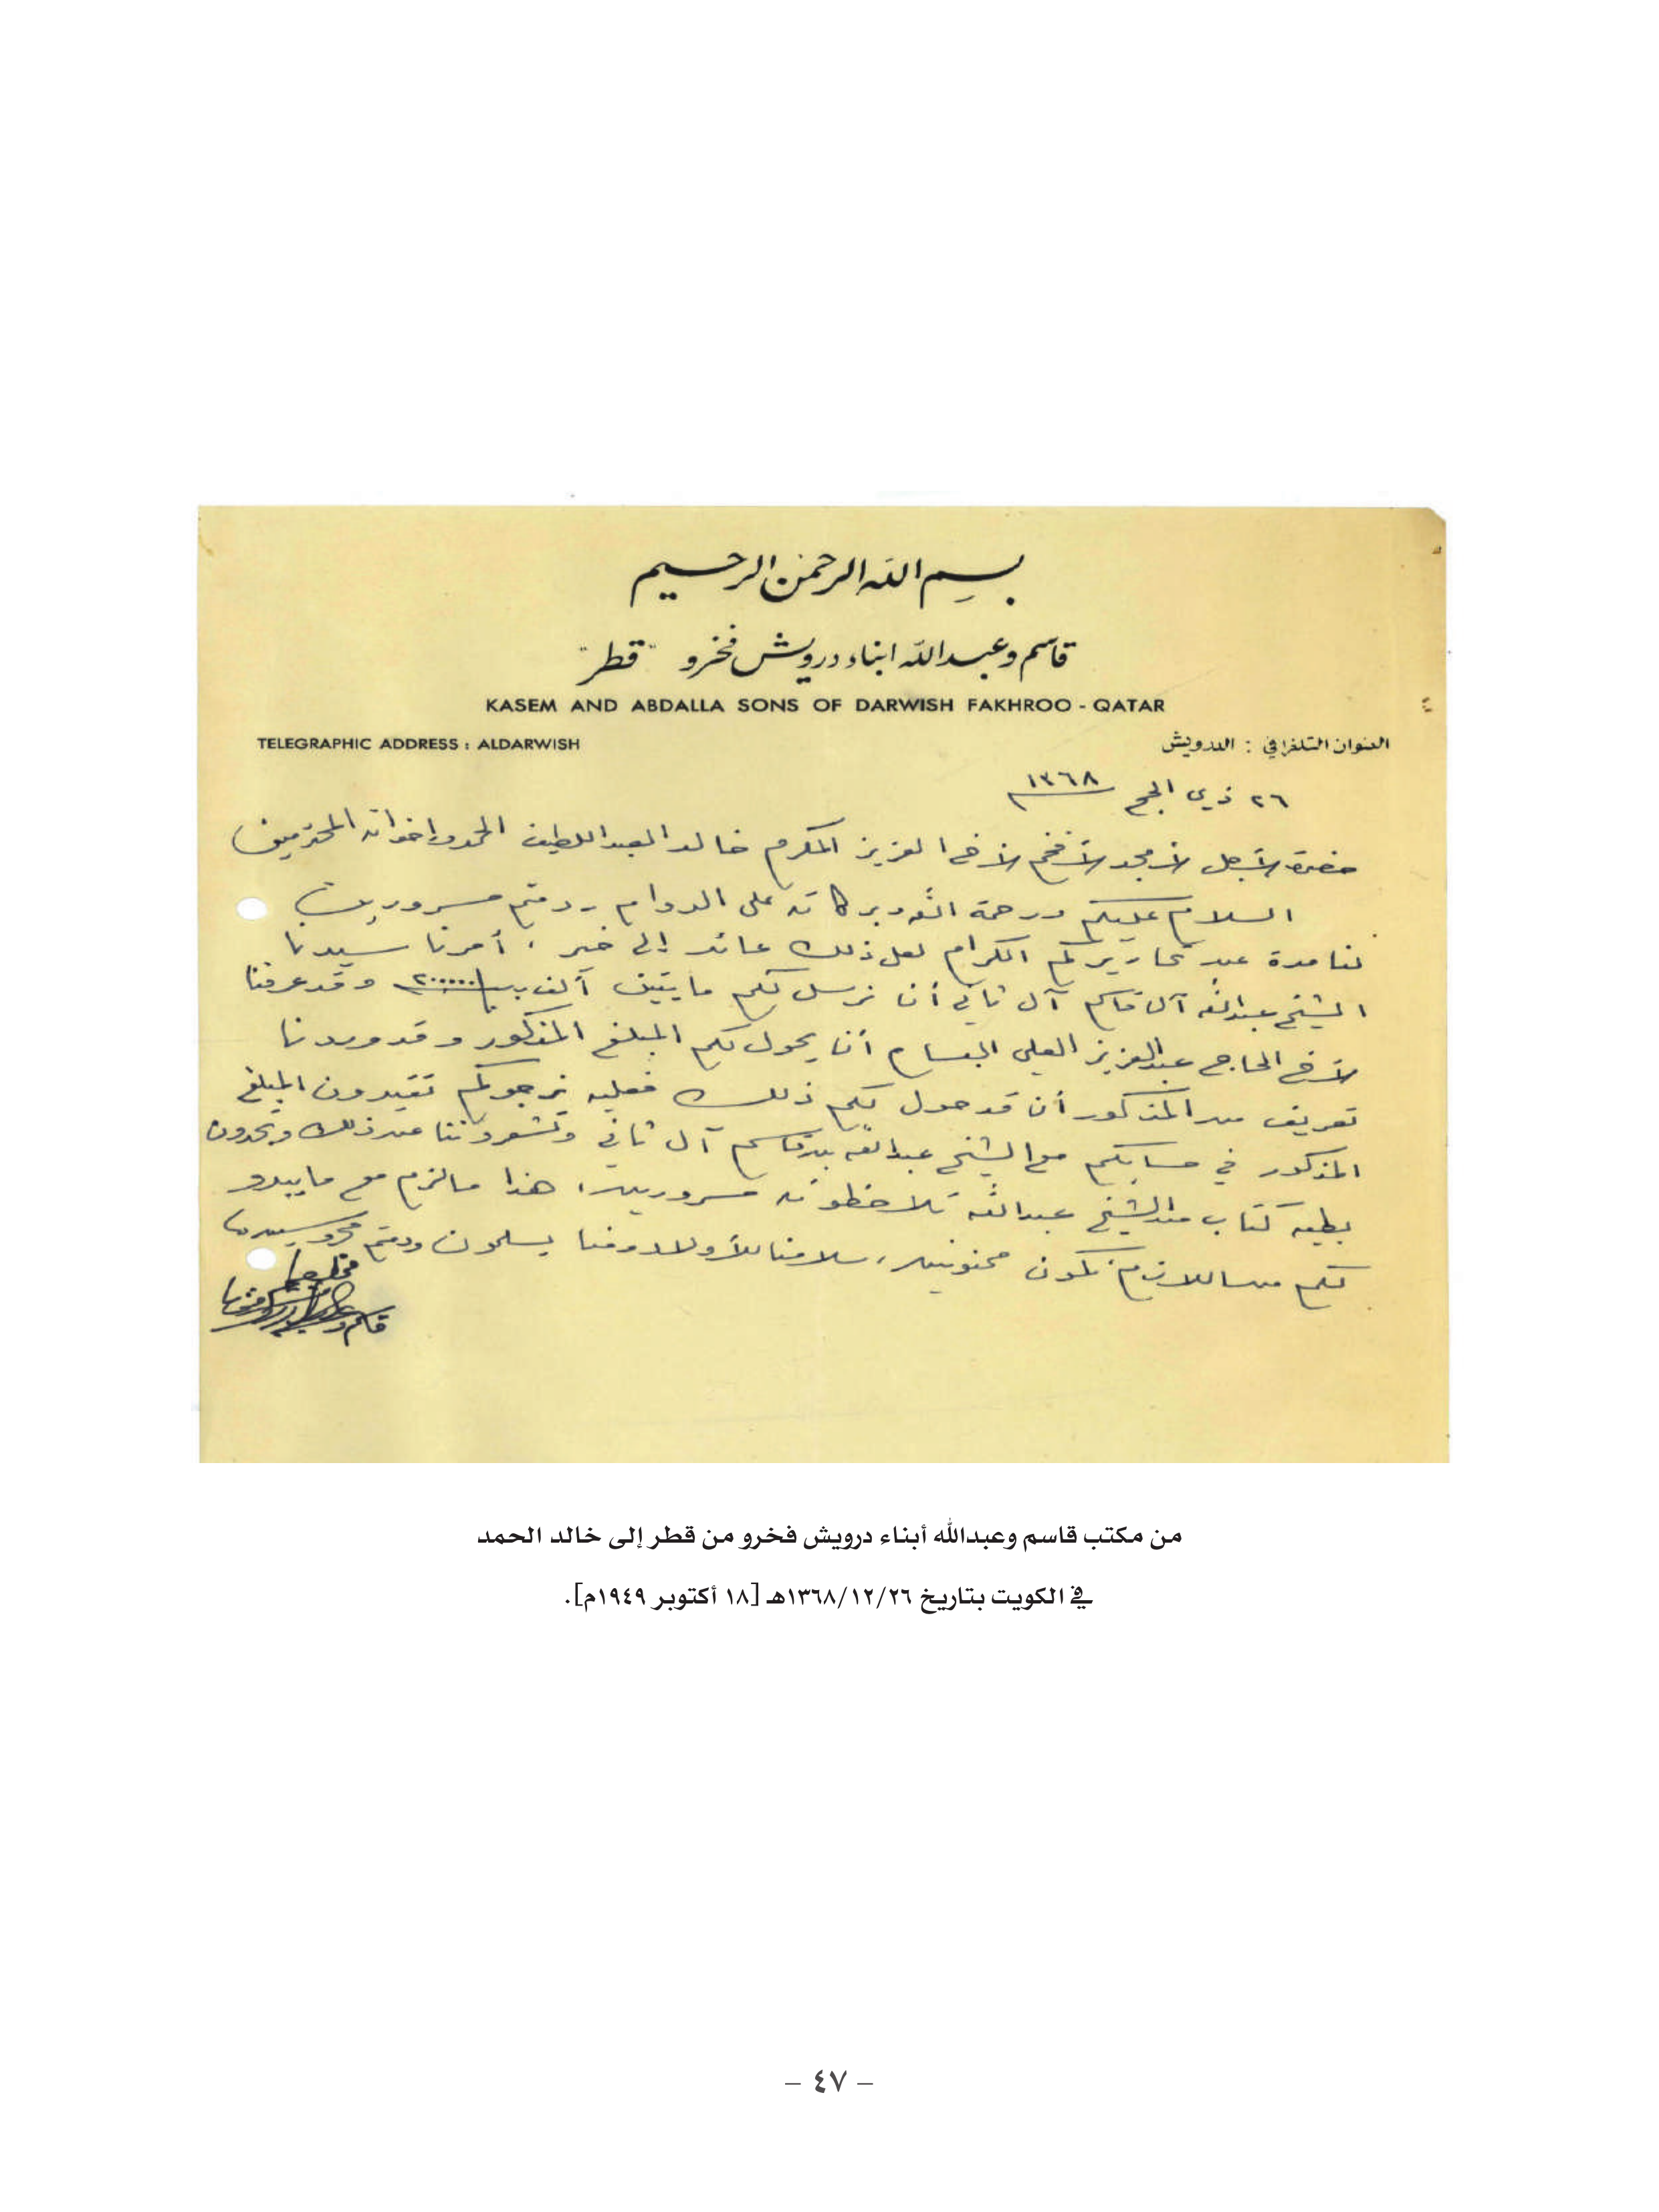 بسم الله الرحمن الرحيم
قاسم وعبدالله ابناء درويش فخرو "قطر"
KASEM AND ABDALLA SONS OF DARWISH FAKHROO - QATAR
TELEGRAPHIC ADDRESS : ALDARWISH
العنوان التلغرافي : الدرويش
٢٦ ذي الحج ١٣٦٨
حضرة الأجل الأمجد الأفخم الأخ العزيز المكرم خالد العبداللطيف الحمد واخوانه المحترمين
السلام عليكم ورحمة الله وبركاته على الدوام ودمتم مسرورين
لنا مدة عن تحاريركم الكرام لعل ذلك عائد إلى خير ، أمرنا سيدنا
الشيخ عبدالله آل قاسم آل ثاني أن نرسل لكم مايتين ألف ٢٠٠٠٠٠ وقد عرفنا
الأخ الحاج عبدالعزيز العلي البسام أن يحول لكم المبلغ المذكور وقد وردنا
تعريف من المذكور أن قد حول لكم ذلك فعليه نرجوكم تقيدون المبلغ
المذكور في حسابكم مع الشيخ عبدالله بن قاسم آل ثاني وتشعروننا عن ذلك وتجدون
بطيه كتاب من الشيخ عبدالله تلاحظونه مسرورين ، هذا مالزم مع مايبدو
لكم من اللازم نكون ممنونين ، سلامنا للأولاد ومنا يسلمون ودمتم محروسين
قاسم و
من مكتب قاسم وعبدالله أبناء درويش فخرو من قطر إلى خالد الحمد
في الكويت بتاريخ ١٣٦٨/١٢/٢٦هـ [١٨ أكتوبر ١٩٤٩م].
– ٤٧ –